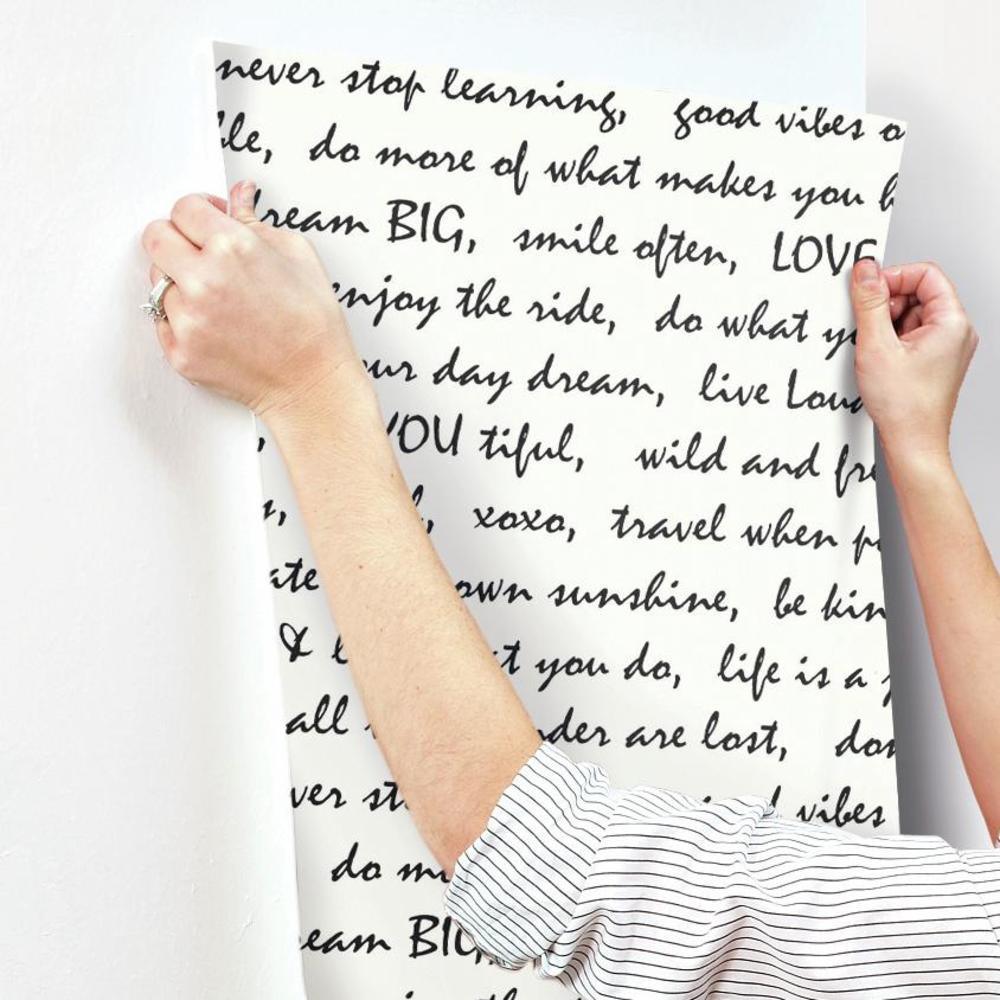 never stop learning, good vibes
do more of what makes you
dream BIG, smile often, LOVE
enjoy the ride, do what
day dream, live Loud
YOU tiful, wild and
xoxo, travel when
own sunshine, be
& you do, life is a
all are lost,
vibes
do
BIG,